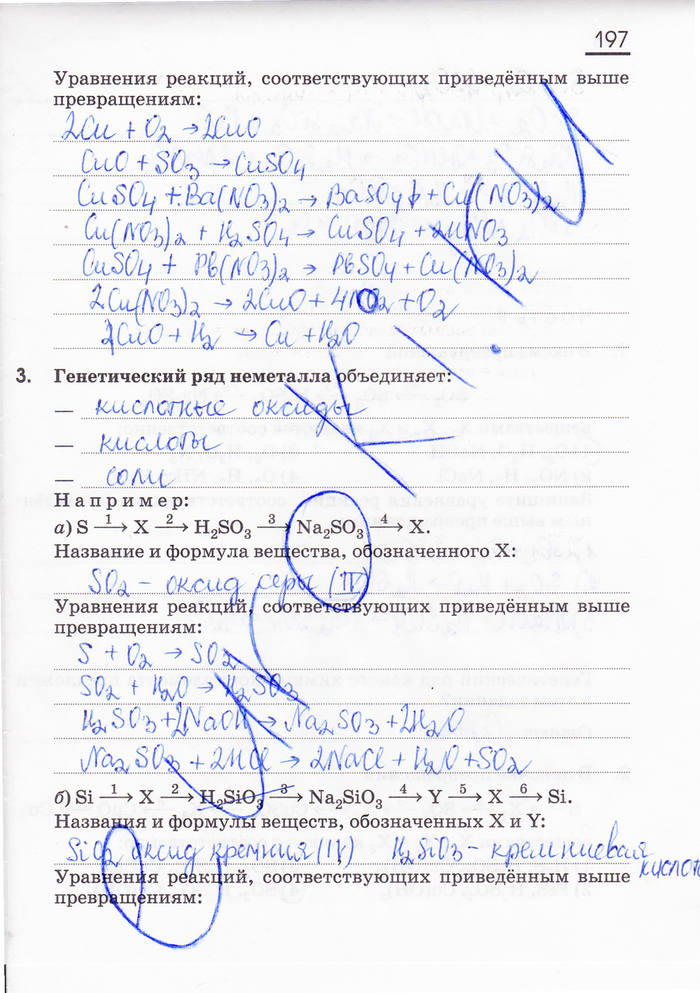 197
Уравнения реакций, соответствующих приведённым выше
превращениям:
2Cu + O₂ → 2CuO
CuO + SO₃ → CuSO₄
CuSO₄ + Ba(NO₃)₂ → BaSO₄↓ + Cu(NO₃)₂
Cu(NO₃)₂ + H₂SO₄ → CuSO₄ + 2HNO₃
CuSO₄ + Pb(NO₃)₂ → PbSO₄ + Cu(NO₃)₂
2Cu(NO₃)₂ → 2CuO + 4NO₂ + O₂
CuO + H₂ → Cu + H₂O
3. Генетический ряд неметалла объединяет:
— кислотные оксиды
— кислоты
— соли
Например:
а) S —1→ X —2→ H₂SO₃ —3→ Na₂SO₃ —4→ X.
Название и формула вещества, обозначенного X:
SO₂ – оксид серы (IV)
Уравнения реакций, соответствующих приведённым выше
превращениям:
S + O₂ → SO₂
SO₂ + H₂O → H₂SO₃
H₂SO₃ + 2NaOH → Na₂SO₃ + 2H₂O
Na₂SO₃ + 2HCl → 2NaCl + H₂O + SO₂
б) Si —1→ X —2→ H₂SiO₃ —3→ Na₂SiO₃ —4→ Y —5→ X —6→ Si.
Названия и формулы веществ, обозначенных X и Y:
SiO₂ оксид кремния (IV) H₂SiO₃ – кремниевая
кислота
Уравнения реакций, соответствующих приведённым выше
превращениям: